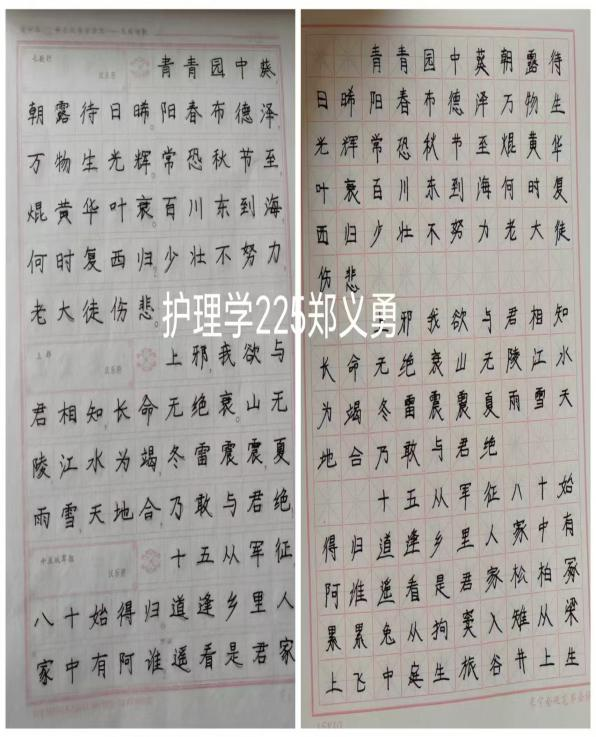 长歌行
汉乐府
青青园中葵,
朝露待日晞。阳春布德泽,
万物生光辉。常恐秋节至,
焜黄华叶衰。百川东到海,
何时复西归。少壮不努力,
老大徒伤悲。
上邪
汉乐府
上邪,我欲与
君相知,长命无绝衰。山无
陵江水为竭,冬雷震震夏
雨雪,天地合,乃敢与君绝
十五从军征
汉乐府
十五从军征,
八十始得归道逢乡里人
家中有阿谁遥看是君家
护理学225郑义勇
青青园中葵朝露待
日晞阳春布德泽万物生
光辉常恐秋节至焜黄华
叶衰百川东到海何时复
西归少壮不努力老大徒
伤悲
上邪我欲与君相知
长命无绝衰山无陵江水
为竭冬雷震震夏雨雪天
地合乃敢与君绝
十五从军征八十始
得归道逢乡里人家中有
阿谁遥看是君家松柏冢
累累兔从狗窦入雉从梁
上飞中庭生旅谷井上生